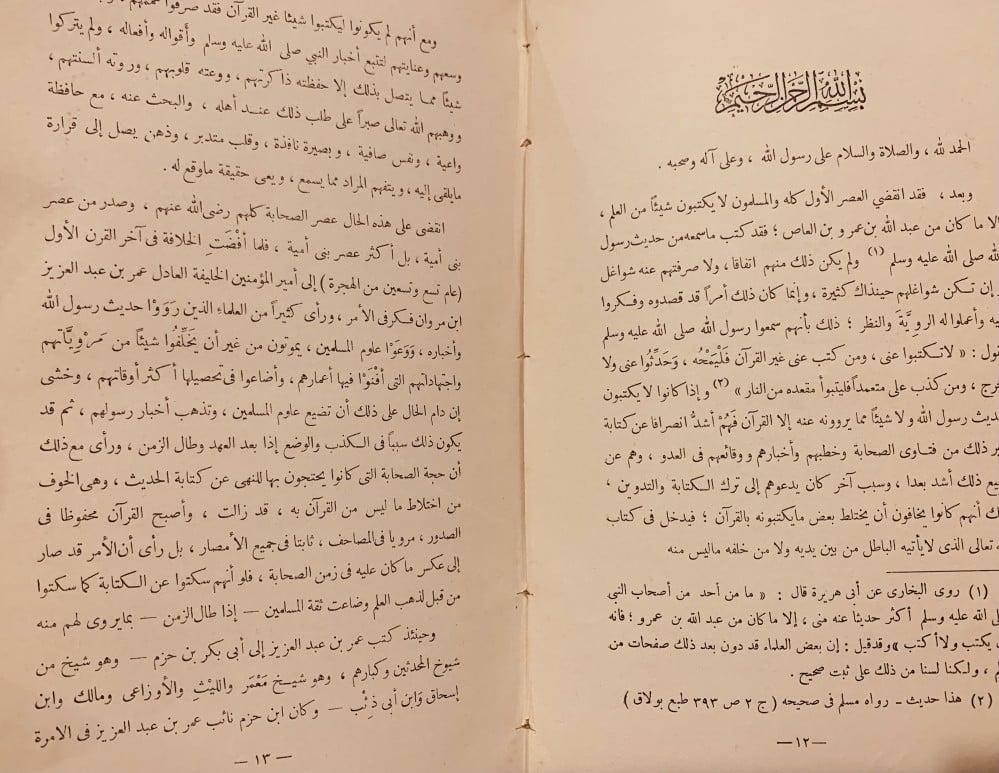 بسم الله الرحمن الرحيم
الحمد لله ، والصلاة والسلام على رسول الله ، وعلى آله وصحبه .
وبعد ، فقد انقضي العصر الأول كله والمسلمون لا يكتبون شيئاً من العلم ،
إلا ما كان من عبد الله بن عمرو بن العاص ؛ فقد كتب ماسمعه من حديث رسول
الله صلى الله عليه وسلم (١) ولم يكن ذلك منهم اتفاقا ، ولا صرفتهم عنه شواغل
إن تكن شواغلهم حينذاك كثيرة ، وإنما كان ذلك أمراً قد قصدوه وفكروا
فيه وأعملوا له الرويَّة والنظر ؛ ذلك بأنهم سمعوا رسول الله صلى الله عليه وسلم
يقول : « لا تكتبوا عنى ، ومن كتب عنى غير القرآن فَلْيَمْحُه ، وَحَدِّثُوا عنى ولا
حرج ، ومن كذب على متعمداً فليتبوأ مقعده من النار » (٢) وإذا كانوا لا يكتبون
حديث رسول الله ولا شيئاً مما يروونه عنه إلا القرآن فَهُمْ أشدُّ انصرافا عن كتابة
غير ذلك من فتاوى الصحابة وخطبهم وأخبارهم ووقائعهم فى العدو ، وهم عن
جميع ذلك أشد بعدا ، وسبب آخر كان يدعوهم إلى ترك الكتابة والتدوين ،
ذلك أنهم كانوا يخافون أن يختلط بعض مايكتبونه بالقرآن ؛ فيدخل فى كتاب
الله تعالى الذى لا يأتيه الباطل من بين يديه ولا من خلفه ماليس منه
(١) روى البخارى عن أبى هريرة قال : « ما من أحد من أصحاب النبي
صلى الله عليه وسلم أكثر حديثا عنه منى ، إلا ما كان من عبد الله بن عمرو ؛ فانه
كان يكتب ولا أكتب » وقد قيل : إن بعض العلماء قد دون بعد ذلك صفحات من
العلم ، ولكنا لسنا من ذلك على ثبت صحيح .
(٢) هذا حديث ـ رواه مسلم فى صحيحه ( ج ٢ ص ٣٩٣ طبع بولاق )
— ١٢ —
ومع أنهم لم يكونوا ليكتبوا شيئا غير القرآن فقد صرفوا
وسعهم وعنايتهم لتتبع أخبار النبي صلى الله عليه وسلم وأقواله وأفعاله ، ولم يتركوا
شيئاً مما يتصل بذلك إلا حفظته ذاكرتهم ، ووعته قلوبهم ، وروته ألسنتهم ،
ووهبهم الله تعالى صبراً على طلب ذلك عند أهله ، والبحث عنه ، مع حافظة
واعية ، ونفس صافية ، وبصيرة نافذة ، وقلب متدبر ، وذهن يصل إلى قرارة
مايلقى إليه ، ويتفهم المراد مما يسمع ، ويعى حقيقة ماوقع له .
انقضى على هذه الحال عصر الصحابة كلهم رضى الله عنهم ، وصدر من عصر
بنى أمية ، بل أكثر عصر بنى أمية ، فلما أفْضَتِ الخلافة فى آخر القرن الأول
(عام تسع وتسعين من الهجرة ) إلى أمير المؤمنين الخليفة العادل عمر بن عبد العزيز
ابن مروان فكر فى الأمر ، ورأى كثيراً من العلماء الذين رَوَوْا حديث رسول الله
وأخباره ، وَوَعَوْا علوم المسلمين ، يموتون من غير أن يَخَلِّفُوا شيئاً من مَرْوِيَّاتهم
واجتهاداتهم التى أفْنَوْا فيها أعمارهم ، وأضاعوا فى تحصيلها أكثر أوقاتهم ، وخشى
إن دام الحال على ذلك أن تضيع علوم المسلمين ، وتذهب أخبار رسولهم ، ثم قد
يكون ذلك سبباً فى الكذب والوضع إذا بعد العهد وطال الزمن ، ورأى مع ذلك
أن حجة الصحابة التى كانوا يحتجون بها للنهى عن كتابة الحديث ، وهى الخوف
من اختلاط ما ليس من القرآن به ، قد زالت ، وأصبح القرآن محفوظا فى
الصدور ، مرويا فى المصاحف ، ثابتا فى جميع الأمصار ، بل رأى أن الأمر قد صار
إلى عكس ما كان عليه فى زمن الصحابة ، فلو أنهم سكتوا عن الكتابة كما سكتوا
من قبل لذهب العلم وضاعت ثقة المسلمين — إذا طال الزمن — بمايروى لهم منه
وحينئذ كتب عمر بن عبد العزيز إلى أبى بكر بن حزم — وهو شيخ من
شيوخ المحدثين وكبارهم ، وهو شيخ مَعْمَر والليْث والأوزاعى ومالك وابن
إسحاق وَابن أبى ذِئْب — وكان ابن حزم نائب عمر بن عبد العزيز فى الامرة
— ١٣ —